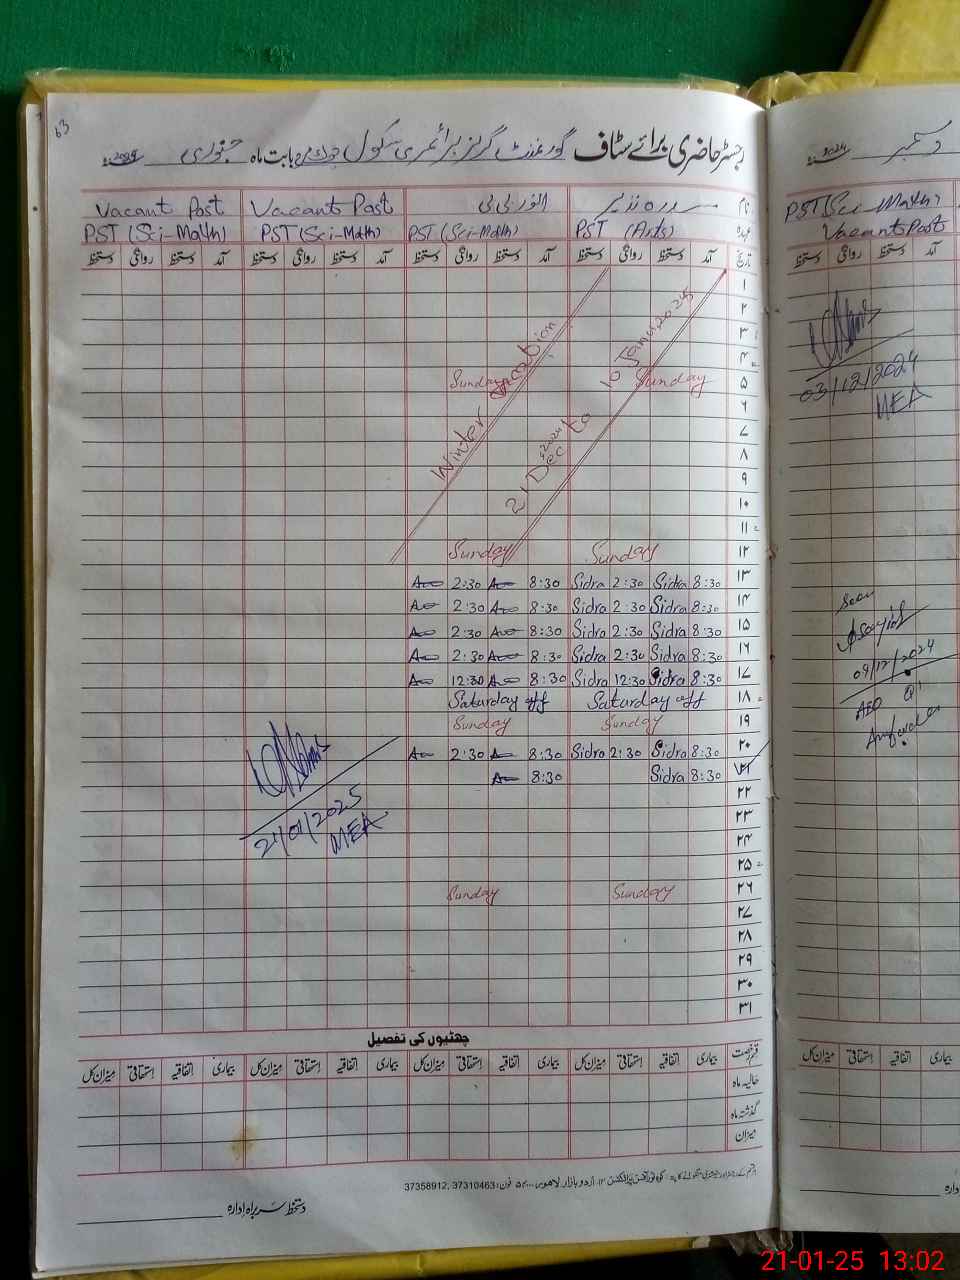 63
رجسٹر حاضری برائے سٹاف گورنمنٹ گرلز پرائمری سکول بابت ماہ جنوری
نام سدرہ نذیر انور بی بی Vacant Post Vacant Post
عہدہ PST (Arts) PST (Sci-Math) PST (Sci-Math) PST (Sci-Math)
تاریخ آمد دستخط روانگی دستخط آمد دستخط روانگی دستخط آمد دستخط روانگی دستخط آمد دستخط روانگی دستخط
۱
۲
۳
۴
Sunday Sunday ۵
۶
۷
۸
۹
۱۰
۱۱
Winter Vacation
21 Dec 2024 to 10 Janu. 2025
Sunday Sunday ۱۲
2:30 8:30 Sidra 2:30 Sidra 8:30 ۱۳
2:30 8:30 Sidra 2:30 Sidra 8:30 ۱۴
2:30 8:30 Sidra 2:30 Sidra 8:30 ۱۵
2:30 8:30 Sidra 2:30 Sidra 8:30 ۱۶
12:30 8:30 Sidra 12:30 Sidra 8:30 ۱۷
Saturday off Saturday off ۱۸
Sunday Sunday ۱۹
2:30 8:30 Sidra 2:30 Sidra 8:30 ۲۰
8:30 Sidra 8:30 ۲۱
21/01/2025
MEA
۲۲
۲۳
۲۴
۲۵
Sunday Sunday ۲۶
۲۷
۲۸
۲۹
۳۰
۳۱
چھٹیوں کی تفصیل
قسم رخصت بیماری اتفاقیہ استحقاقی میزان کل بیماری اتفاقیہ استحقاقی میزان کل بیماری اتفاقیہ استحقاقی میزان کل بیماری اتفاقیہ استحقاقی میزان کل
حالیہ ماہ
گذشتہ ماہ
میزان
اردو بازار لاہور فون: 37310463, 37358912
دستخط سربراہ ادارہ
دسمبر 2024
PST (Sci-Math)
Vacant Post
آمد دستخط روانگی دستخط
03/12/2024
MEA
Seen
09/12/2024
AEO
بیماری اتفاقیہ استحقاقی میزان کل
21-01-25 13:02